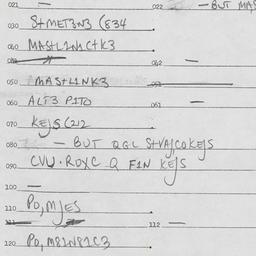 021 — 022 — BUT MAS
030 S+MET3N3 (834
040 MAS+L1N1C+K3
052 —
050 MAS+L1NK3
060 ALT3 P1TO 061 —
070 KEJS (212
080 — BUT QGL S+VAJCOKEJS
090 CVW.ROXC Q F1N KEJS
100 —
110 PO,MJES
111 112 —
120 PO,M81N81C3